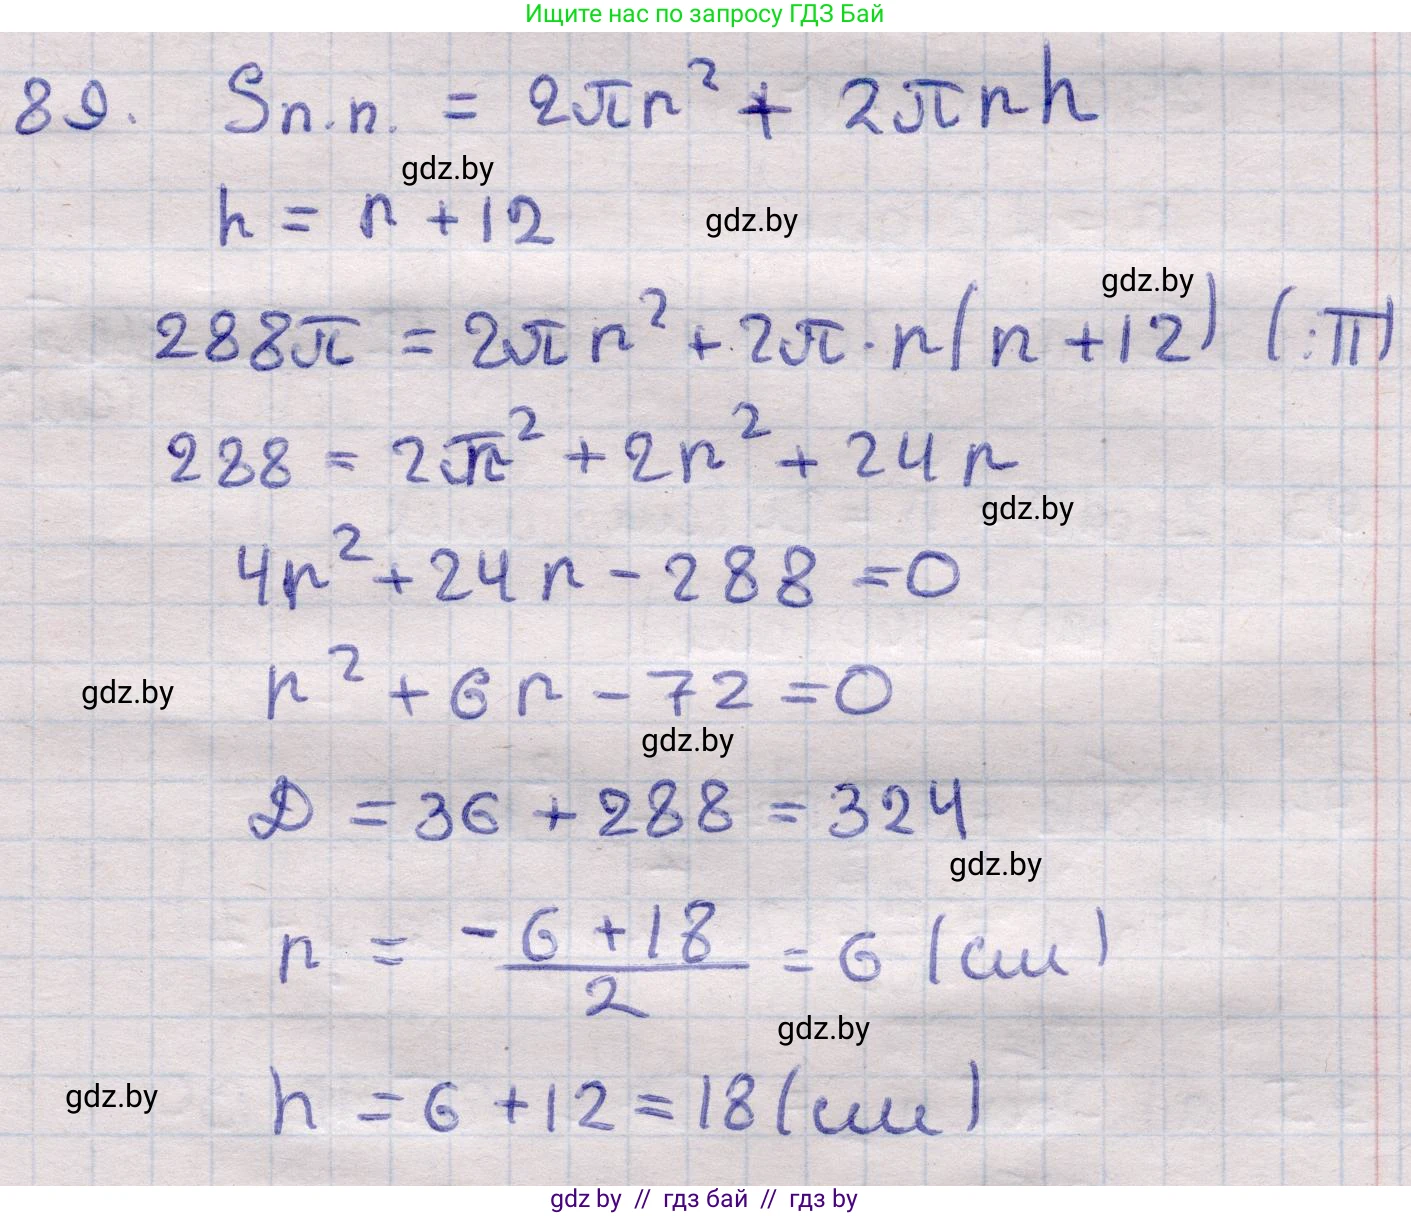 Ищите нас по запросу ГДЗ Бай
89. Sп.п. = 2πr² + 2πrh
gdz.by
h = r + 12
gdz.by
gdz.by
288π = 2πr² + 2π·r(r + 12) (:π)
288 = 2r² + 2r² + 24r
gdz.by
4r² + 24r - 288 = 0
r² + 6r - 72 = 0
gdz.by
gdz.by
D = 36 + 288 = 324
gdz.by
r = (-6 + 18)/2 = 6 (см)
gdz.by
h = 6 + 12 = 18 (см)
gdz.by
gdz by // гдз бай // гдз by